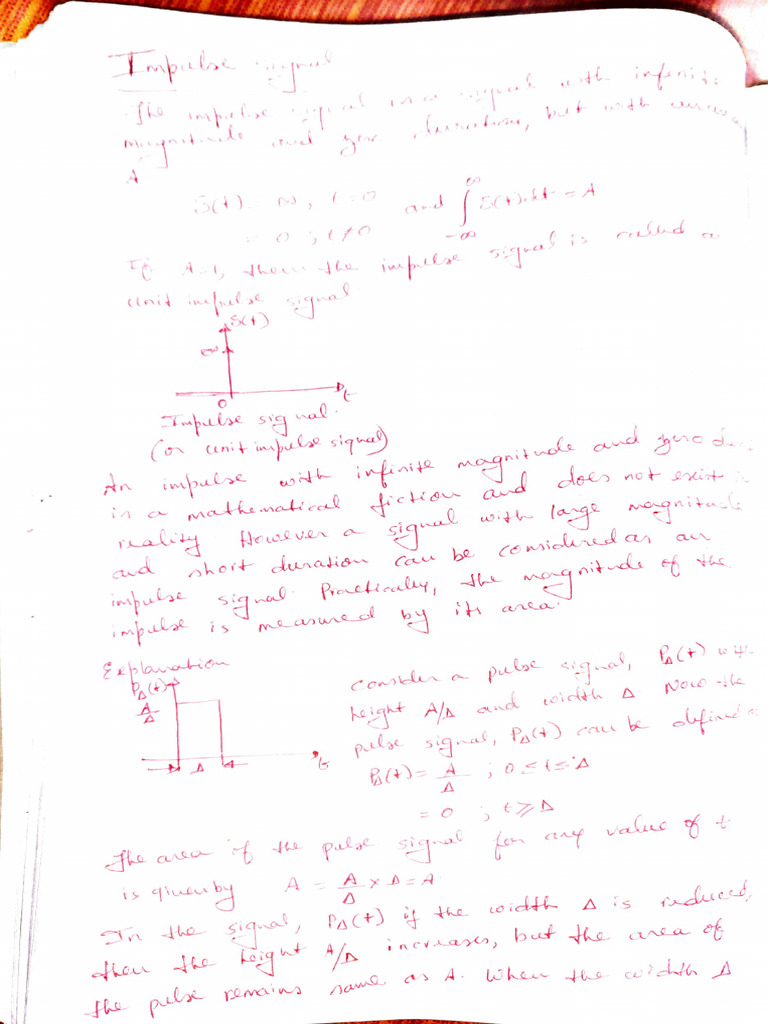 Impulse signal
The impulse signal is a signal with infinite
magnitude and zero duration, but with an area
A
δ(t) = ∞, t=0 and ∫_{-∞}^{∞} δ(t) dt = A
= 0 ; t≠0
If A=1, then the impulse signal is called a
unit impulse signal
δ(t)
∞
0
t
Impulse signal.
(or unit impulse signal)
An impulse with infinite magnitude and zero
is a mathematical fiction and does not exist
reality. However a signal with large magnitude
and short duration can be considered as an
impulse signal. Practically, the magnitude of the
impulse is measured by its area.
Explanation
P_Δ(t)
A/Δ
Δ
t
Consider a pulse signal, P_Δ(t) with
height A/Δ and width Δ Now the
pulse signal, P_Δ(t) can be defined
P_Δ(t) = A/Δ ; 0 ≤ t ≤ Δ
= 0 ; t ≥ Δ
The area of the pulse signal for any value of t
is given by A = A/Δ × Δ = A
In the signal, P_Δ(t) if the width Δ is reduced,
then the height A/Δ increases, but the area of
the pulse remains same as A. When the width Δ